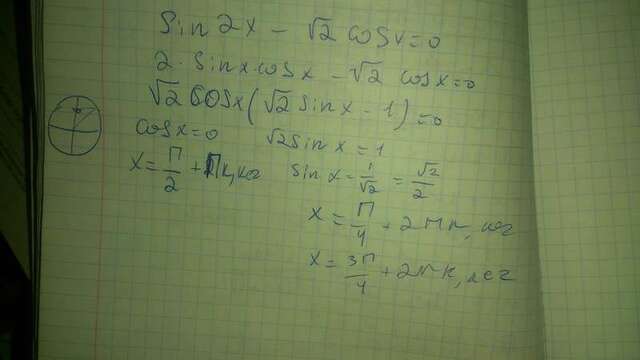 sin 2x - √2 cos x = 0
2 · sin x cos x - √2 cos x = 0
√2 cos x (√2 sin x - 1) = 0
cos x = 0 √2 sin x = 1
x = П/2 + Пк, к∈z sin x = 1/√2 = √2/2
x = П/4 + 2Пк, к∈z
x = 3П/4 + 2Пк, к∈z